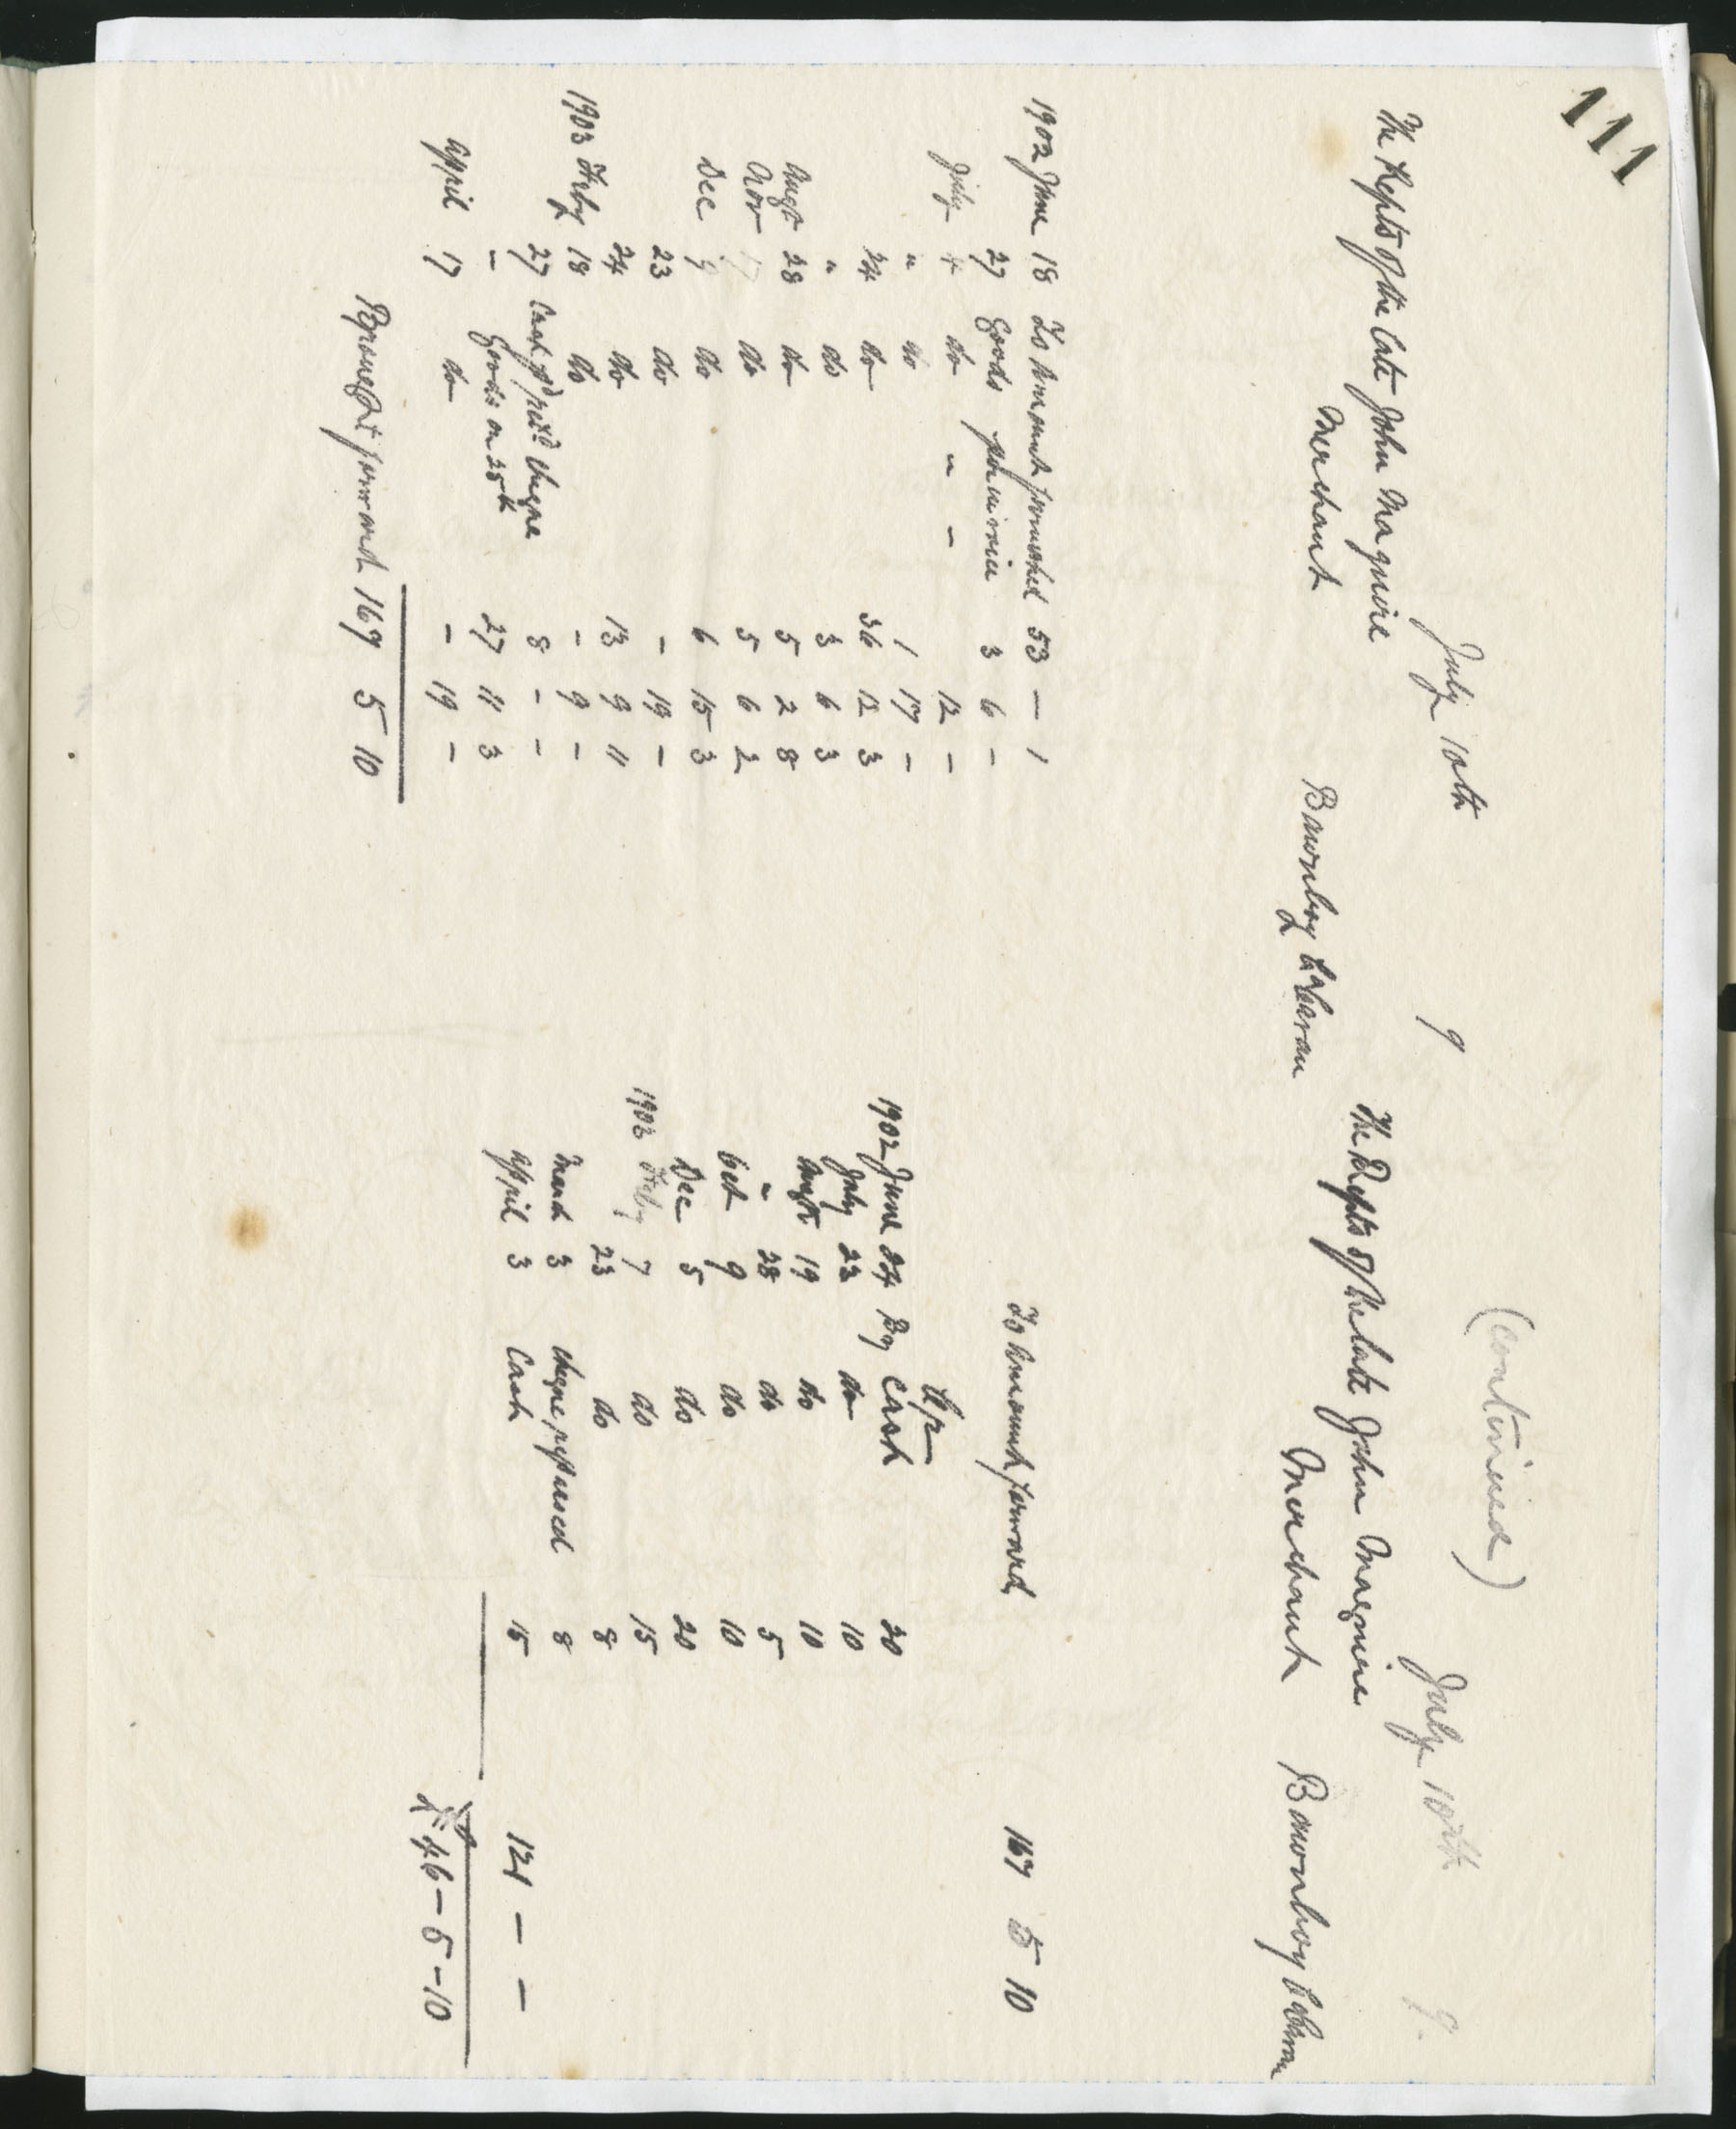 111
July 10th 9
The Repts of the late John Maguire
Merchant
Bawnboy Co Cavan
1902 June 18 To Amount furnished 53 — 1
27 Goods per invoice 3 6 –
July 4 do " – 12 –
" do 1 17 –
24 do 36 12 3
" do 3 6 3
Augt 28 do 5 2 8
Nov 17 do 5 6 2
Dec 9 do 6 15 3
23 do – 19 –
24 do 13 9 11
1903 Feby 18 do – 9 –
27 Cash pd retd cheque 8 – –
– Goods on 25th 27 11 3
April 17 do – 19 –
Brought forward 167 5 10
(continued)
July 10th 9.
The Repts of the late John Maguire
Merchant
Bawnboy Co Cavan
To Amount forward 167 5 10
Cr
1902 June 24 By Cash 20
July 23 do 10
Augt 19 do 10
" 28 do 5
Oct 9 do 10
Dec 5 do 20
1903 Feby 7 do 15
23 do 8
March 3 cheque refused 8
April 3 Cash 15 121 – –
£46–5–10